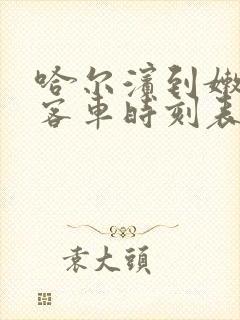 哈尔滨到嫩
客车时刻表
袁大头